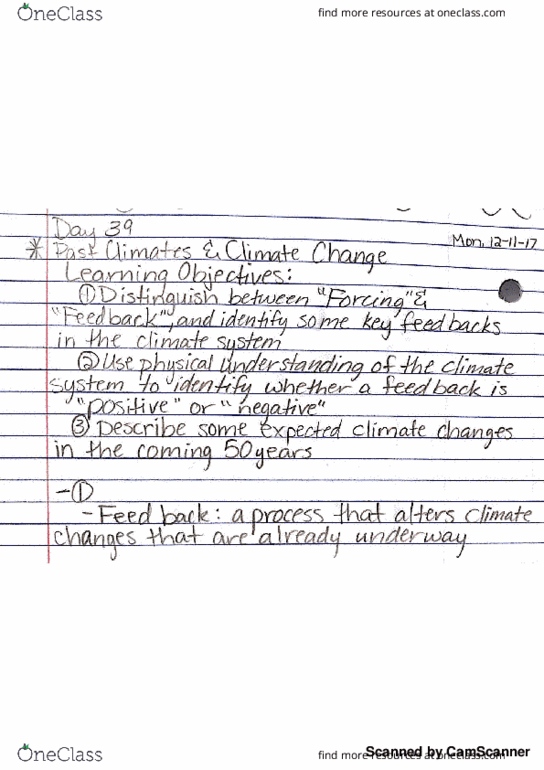 OneClass
find more resources at oneclass.com
Day 39
Mon, 12-11-17
* Past Climates & Climate Change
Learning Objectives:
① Distinguish between "Forcing" &
"Feedback", and identify some key feedbacks
in the climate system
② Use physical understanding of the climate
system to identify whether a feedback is
"positive" or "negative"
③ Describe some expected climate changes
in the coming 50 years
-①
- Feedback: a process that alters climate
changes that are already underway
OneClass
find more resources at oneclass.com
Scanned by CamScanner